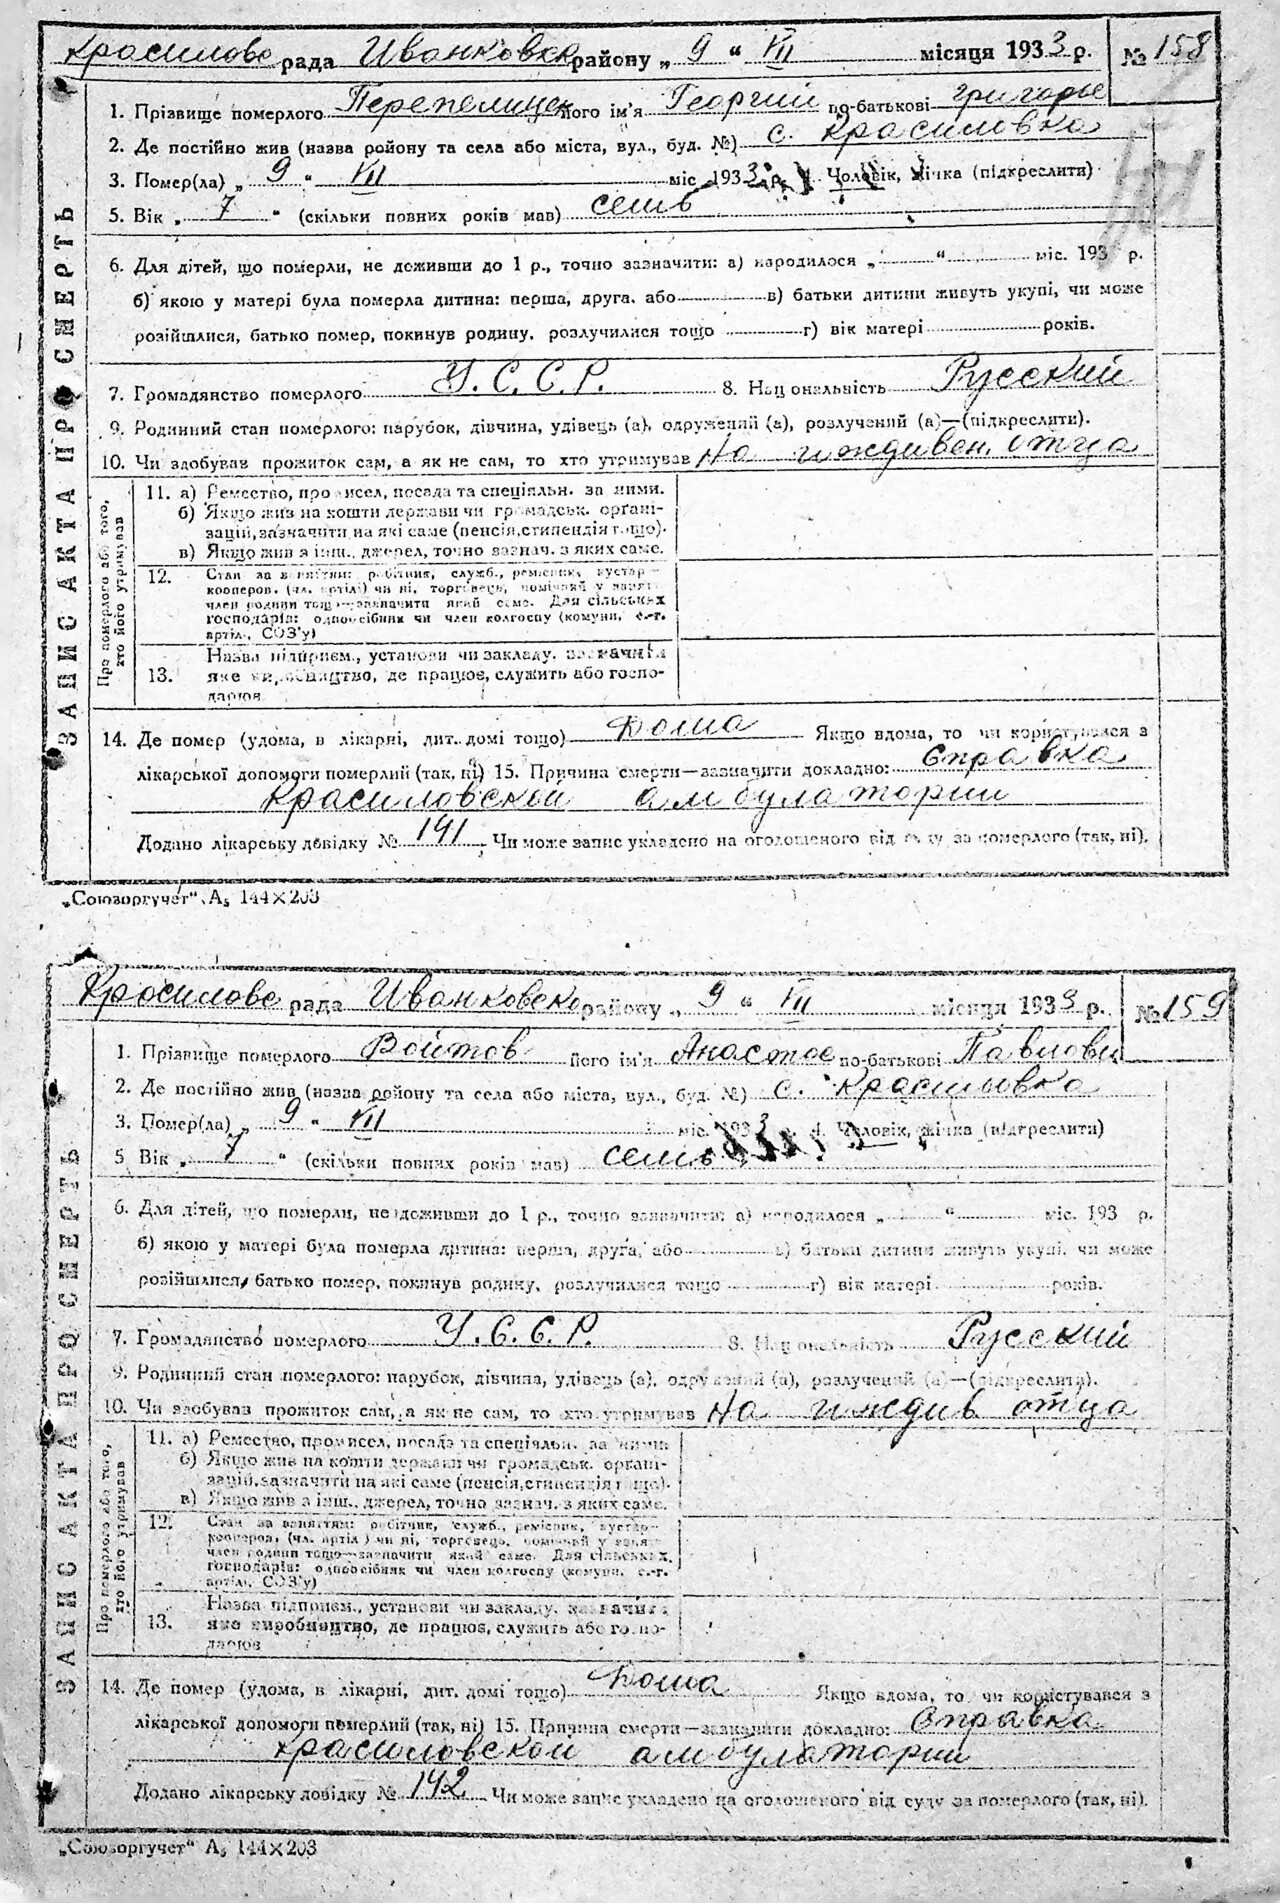 Красилово рада Иванковск району „ 9 “ VII місяця 1933 р. № 158
1. Прізвище померлого Перепелицен його ім'я Георгий по-батькові Григорье
2. Де постійно жив (назва району та села або міста, вул., буд. №) с. Красиловка
3. Помер(ла) „ 9 “ VII міс. 1933 р. 4. Чоловік, жінка (підкреслити)
5. Вік „ 7 “ (скільки повних років мав) семь
6. Для дітей, що померли, не доживши до 1 р., точно зазначити: а) народилося „ “ міс. 193 р.
б) якою у матері була померла дитина: перша, друга, або в) батьки дитини живуть укупі, чи може
розійшлися, батько помер, покинув родину, розлучилися тощо г) вік матері років.
7. Громадянство померлого У.С.С.Р. 8. Національність Русский
9. Родинний стан померлого: парубок, дівчина, удівець (а), одружений (а), розлучений (а)—(підкреслити).
10. Чи здобував прожиток сам, а як не сам, то хто утримував На иждивен. отца
ЗАПИС АКТА ПРО СМЕРТЬ
Про померлого або того, хто його утримував
11. а) Ремество, промисел, посада та спеціяльн. за ними.
б) Якщо жив на кошти держави чи громадськ. органі-
зацій, зазначити на які саме (пенсія, стипендія тощо).
в) Якщо жив з інш. джерел, точно зазнач. з яких саме.
12. Стан за заняттям: робітник, служб., ремісник, кустар—
кооперов. (чл. артілі) чи ні, торговець, помічний у занят.
член родини тощо—зазначити який саме. Для сільських
господарів: одноосібник чи член колгоспу (комуни, с.-г.
артіл., СОЗ'у)
Назва підприєм., установи чи закладу, зазначить
13. яке виробництво, де працює, служить або госпо-
дарює
14. Де помер (удома, в лікарні, дит. домі тощо) Дома Якщо вдома, то чи користувався з
лікарської допомоги померлий (так, ні) 15. Причина смерти—зазначити докладно: Справка
Красиловской амбулатории
Додано лікарську довідку № 141 Чи може запис укладено на оголошеного від суду за померлого (так, ні).
„Союзоргучет“ А5 144×203
Красилово рада Иванковско району „ 9 “ VII місяця 1933 р. № 159
1. Прізвище померлого Войтов його ім'я Анастас по-батькові Павлови
2. Де постійно жив (назва району та села або міста, вул., буд. №) с. Красиловка
3. Помер(ла) „ 9 “ VII міс. 1933 4. Чоловік, жінка (підкреслити)
5 Вік „ 7 “ (скільки повних років мав) семь
6. Для дітей, що померли, не доживши до 1 р., точно зазначити: а) народилося „ “ міс. 193 р.
б) якою у матері була померла дитина: перша, друга, або в) батьки дитини живуть укупі, чи може
розійшлися, батько помер, покинув родину, розлучилися тощо г) вік матері років.
7. Громадянство померлого У.С.С.Р. 8. Національність Русский
9. Родинний стан померлого: парубок, дівчина, удівець (а), одружений (а), розлучений (а)—(підкреслити).
10. Чи здобував прожиток сам, а як не сам, то хто утримував На иждив отца
ЗАПИС АКТА ПРО СМЕРТЬ
Про померлого або того, хто його утримував
11. а) Ремество, промисел, посада та спеціяльн. за ними
б) Якщо жив на кошти держави чи громадськ. органі-
зацій, зазначити на які саме (пенсія, стипендія тощо).
в) Якщо жив з інш. джерел, точно зазнач. з яких саме.
12. Стан за заняттям: робітник, служб., ремісник, кустар—
кооперов. (чл. артілі) чи ні, торговець, помічний у занят.
член родини тощо—зазначити який саме. Для сільських
господарів: одноосібник чи член колгоспу (комуни, с.-г.
артіл., СОЗ'у)
Назва підприєм., установи чи закладу, зазначить
13. яке виробництво, де працює, служить або госпо-
дарює
14. Де помер (удома, в лікарні, дит. домі тощо) Дома Якщо вдома, то чи користувався з
лікарської допомоги померлий (так, ні) 15. Причина смерти—зазначити докладно: Справка
Красиловской амбулатории
Додано лікарську довідку № 142 Чи може запис укладено на оголошеного від суду за померлого (так, ні).
„Союзоргучет“ А5 144×203